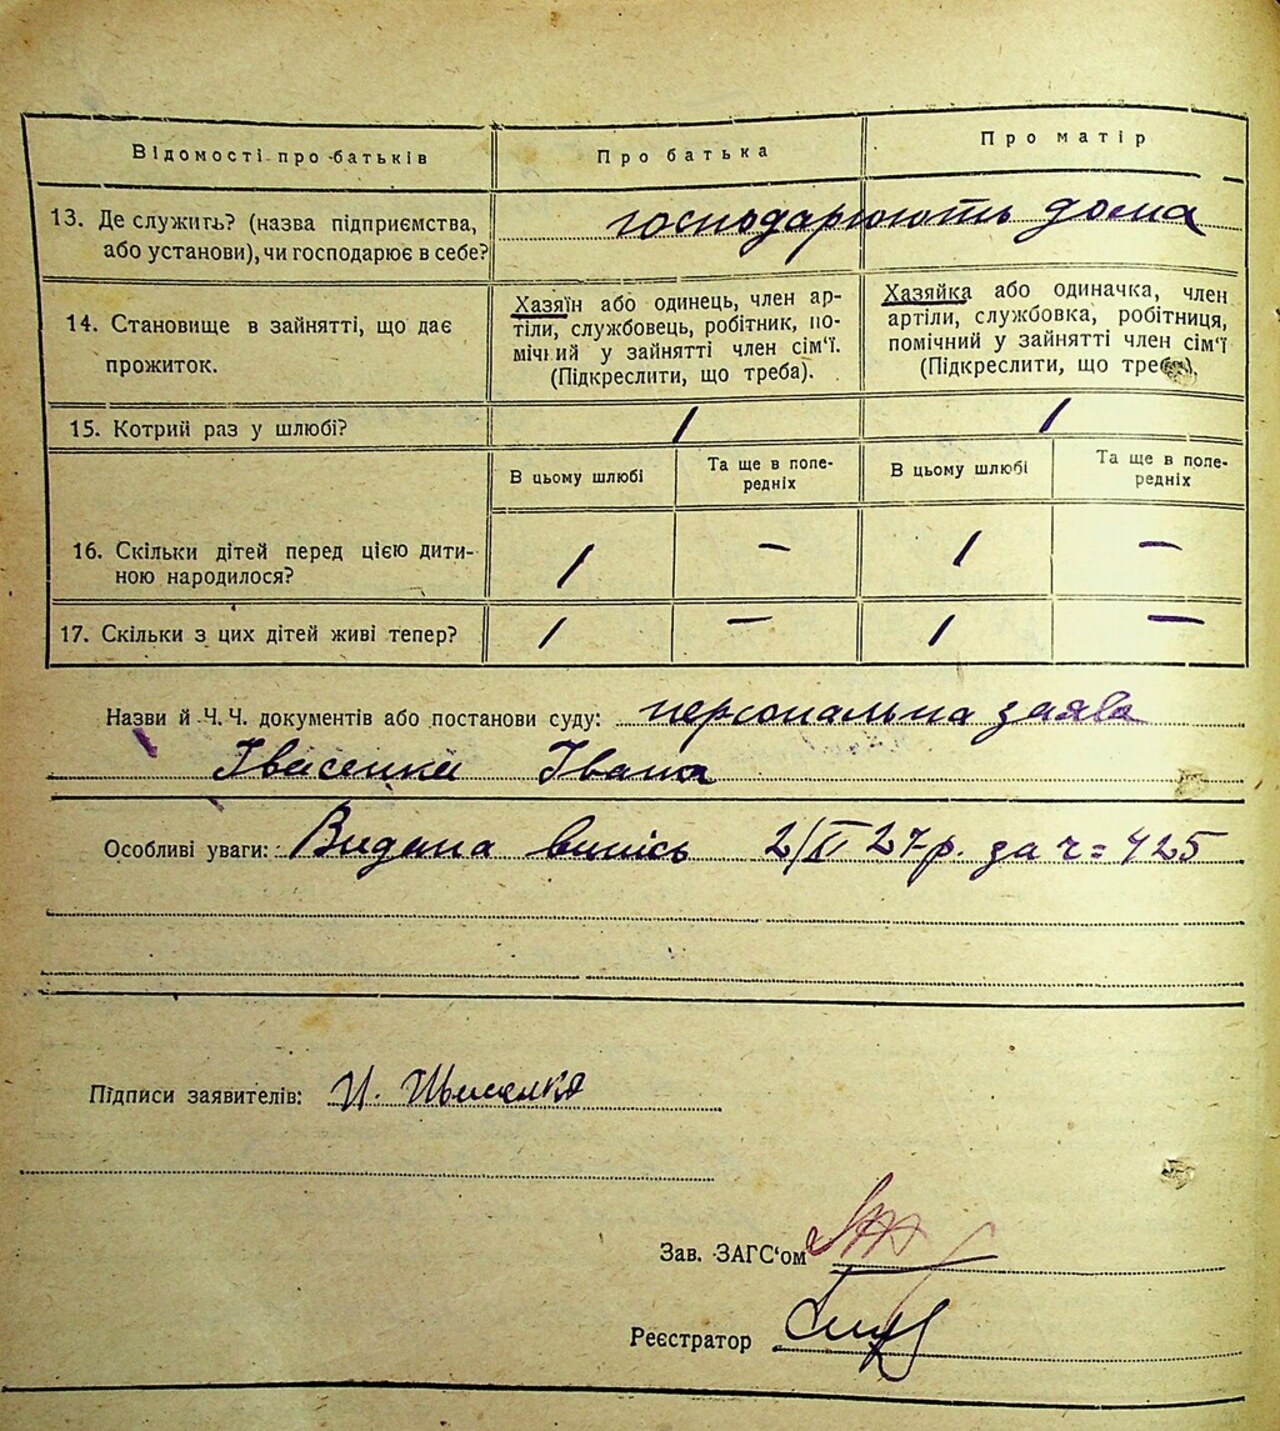 Відомості про батьків Про батька Про матір
13. Де служить? (назва підприємства,
або установи), чи господарює в себе?
господарюють дома
14. Становище в зайнятті, що дає
прожиток.
Хазяїн або одинець, член ар-
тіли, службовець, робітник, по-
мічний у зайнятті член сім'ї.
(Підкреслити, що треба).
Хазяйка або одиначка, член
артіли, службовка, робітниця,
помічний у зайнятті член сім'ї
(Підкреслити, що треба).
15. Котрий раз у шлюбі? 1 1
В цьому шлюбі
Та ще в попе-
редніх
В цьому шлюбі
Та ще в попе-
редніх
16. Скільки дітей перед цією дити-
ною народилося?
1 — 1 —
17. Скільки з цих дітей живі тепер? 1 — 1 —
Назви й Ч. Ч. документів або постанови суду: персональна заява
Івасенка Івана
Особливі уваги: Видана випись 2/XI 27 р. за ч = 425
Підписи заявителів: И.
Зав. ЗАГС'ом
Реєстратор